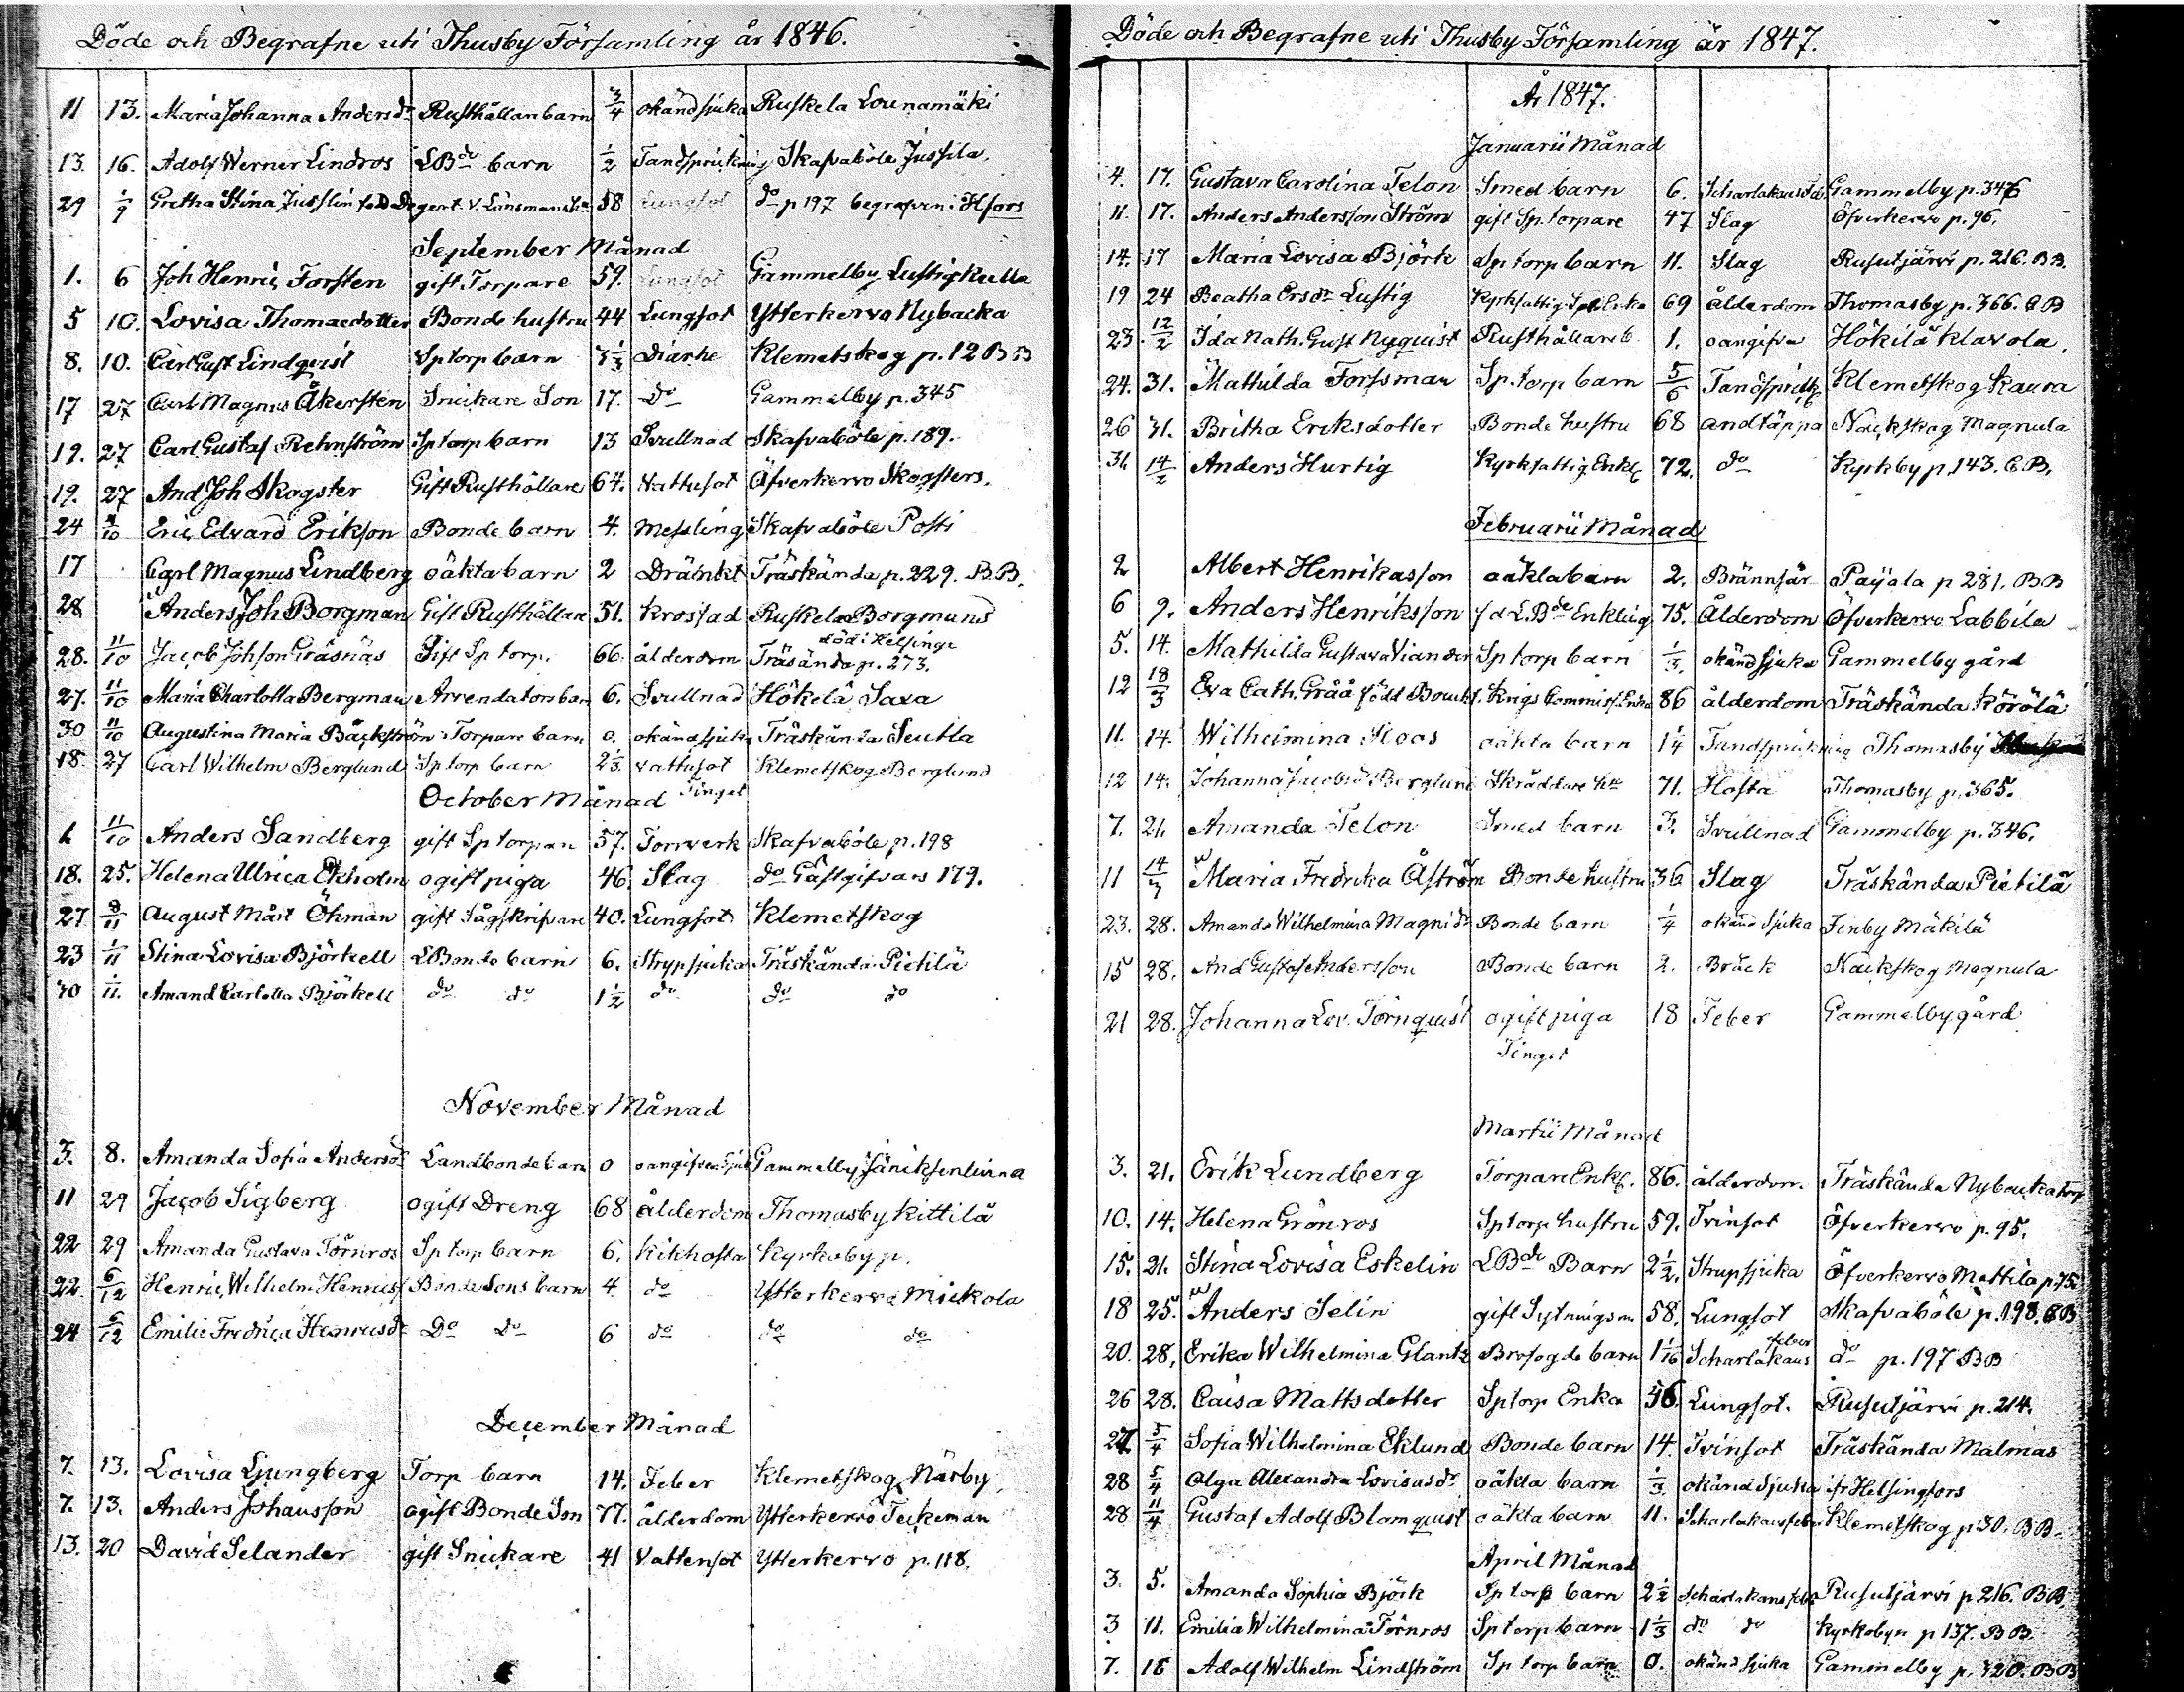 Döde och Begrafne uti Thusby Församling år 1846.
11 13. Maria Johanna Andersdr Rusthållar barn 3/4 okänd sjuka Ruskela Lounamäki
13. 16. Adolf Werner Lindros LBde barn 1/2 Tandsprickning Skafvaböle Jussila.
29 1/9 Gretha Stina Jusslin 58 Lungsot do p 197 begrafven i Hfors
September Månad
1. 6 Joh Henric Forsten gift Torpare 59. Lungsot Gammelby Lustigkulla
5 10. Lovisa Thomaedotter Bonde hustru 44 Lungsot Ytterkervo Nybacka
8. 10. Carl Gust Lindqvist Sp torp barn 3 1/3 Diarhe Klemetskog p. 12 BB
17 27 Carl Magnus Åkersten Snickare Son 17. do Gammelby p. 345
19. 27 Carl Gustaf Rehnström Sp torp barn 13 Svullnad Skafvaböle p. 189.
19. 27 And Joh Skogster Gift Rusthållare 64. Vattusot Öfverkervo Skogsters.
24 4/10 Eric Edvard Erikson Bonde barn 4. Messling Skafvaböle Posti
17 Carl Magnus Lindberg oäkta barn 2 Dränkt Träskända p. 229. BB.
28 Anders Joh Borgman Gift Rusthållare 51. Krossad Ruskela Borgmans
död i Helsinge
28. 11/10 Jacob Johson Gräsnäs Gift Sp torp. 66. ålderdom Träsända p. 273.
27. 11/10 Maria Charlotta Bergman Arrendators barn 6. Svullnad Hökelä Saxa
30 11/10 Augustina Maria Bäckström Torpare barn 0. okänd sjuka Träskända Seutla
18. 27 Carl Wilhelm Berglund Sp torp barn 2 1/3 Vattusot Klemetskog Berglund
October Månad Tinget
6 11/10 Anders Sandberg gift Sp torpare 57. Torrverk Skafvaböle p. 198
18. 25. Helena Ulrica Ekholm ogift piga 46. Slag do Gästgifvars 179.
27 8/11 August Mårt Öhman gift Sågskrifvare 40. Lungsot Klemetskog
23 1/11 Stina Lovisa Björkell LBonde barn 6. Strypsjuka Träskända Pietilä
30 1/11. Amand Carlotta Björkell do do 1 1/2 do do do
November Månad
3. 8. Amanda Sofia Andersdr Landbonde barn 0 oangifven sjuk Gammelby
11 29 Jacob Sigberg ogift Dreng 68 ålderdom Thomasby Kittilä
22 29 Amanda Gustava Törnros Sp torp barn 6. Kikhosta Kyrkoby p.
22 6/12 Henric Wilhelm Henricss Bonde Sons barn 4. do Ytterkervo Mickola
24 6/12 Emilie Fredrica Henricsdr Do Do 6 do do do
December Månad
7. 13. Lovisa Ljungberg Torp barn 14. Feber Klemetskog Närby
7. 13. Anders Johansson ogift Bonde Son 77. ålderdom Ytterkervo Teckeman
13. 20 David Selander gift Snickare 41 Vattensot Ytterkervo p. 118.
Döde och Begrafne uti Thusby Församling år 1847.
År 1847.
Januarii Månad
4. 17. Gustava Carolina Telon Smed barn 6. Scharlakansfeb. Gammelby p. 346
11. 17. Anders Andersson Ström gift Sp. torpare 47 Slag Öfverkervo p. 96.
14. 17 Maria Lovisa Björk Sp torp barn 11. Slag Rusutjärvi p. 216. BB.
19 24 Beatha Ersdr Lustig Kyrkfattig Enka 69 ålderdom Thomasby p. 366. CB
23. 12/2 Ida Nath. Gust Nyquist Rusthållare b 1. oangifva Hökilä Klavola.
24. 31. Mathilda Forssman Sp. torp barn 5/6 Tandsprickg Klemetskog Kaura
26 31. Britha Eriksdotter Bonde hustru 68 andtäppa Nackskog Magnula
31 14/2 Anders Hurtig Kyrkfattig Enkl. 72. do Kyrkby p. 143. CB.
Februarii Månad
2 Albert Henrikasson oäkta barn 2. Brännsår Payala p 281. BB
6 9. Anders Henriksson fd LBde Enkling 75. Ålderdom Öfverkervo Labbila
5. 14. Mathilda Gustava Viander Sp torp barn 1/3. okänd sjuka Gammelby gård
12 18/3 Eva Cath. Gråå född Krigs Commiss. Enka 86 ålderdom Träskända Körölä
11. 14. Wilhelmina Kloos oäkta barn 1 1/4 Tandsprickning Thomasby
12 14. Johanna Jacobsd Berglund Skräddare hu 71. Hosta Thomasby p. 365.
7. 21. Amanda Telon Smed barn 3. Svullnad Gammelby p. 346.
11 14/3 Maria Fredrika Åström Bonde hustru 36 Slag Träskända Pietilä
23. 28. Amanda Wilhelmina Magnidr Bonde barn 1/4 okänd sjuka Finby Mäkilä
15 28. And Gustaf Andersson Bonde barn 2. Bråck Nackskog Magnula
21 28. Johanna Lov. Törnquist ogift piga 18 Feber Gammelby gård
Tinget
Martii Månad
3. 21. Erik Lundberg Torpare Enkl. 86. ålderdom. Träskända Nybacka torp
10. 14. Helena Grönros Sp torp hustru 59. Tvinsot Öfverkervo p. 95.
15. 21. Stina Lovisa Eskelin LBde Barn 2 1/2. Strupsjuka Öfverkervo Mattila p. 75
18 25. Anders Selin gift Sytningsm 58. Lungsot Skafvaböle p. 198. CB
20. 28. Erika Wilhelmina Glantz Brofogde barn 1 1/16 Scharlakans feber do p. 197 BB
26 28. Caisa Mattsdotter Sp torp Enka 56. Lungsot. Rusutjärvi p. 214.
27 5/4 Sofia Wilhelmina Eklund Bonde barn 14. Tvinsot Träskända Malmas
28 5/4 Olga Alexandra Lovisasdr oäkta barn 1/3. okänd sjuka ifr Helsingfors
28 11/4 Gustaf Adolf Blomquist oäkta barn 11. Scharlakansfeber Klemetskog p 30. BB.
April Månad
3. 5. Amanda Sophia Björk Sp torp barn 2 1/2 Scharlakansfeb Rusutjärvi p 216. BB.
3 11. Emilia Wilhelmina Törnros Sp torp barn 1 1/3 do do Kyrkobyn p 137. BB.
7. 18 Adolf Wilhelm Lindström Sp torp barn 0. okänd sjuka Gammelby p. 320. BB